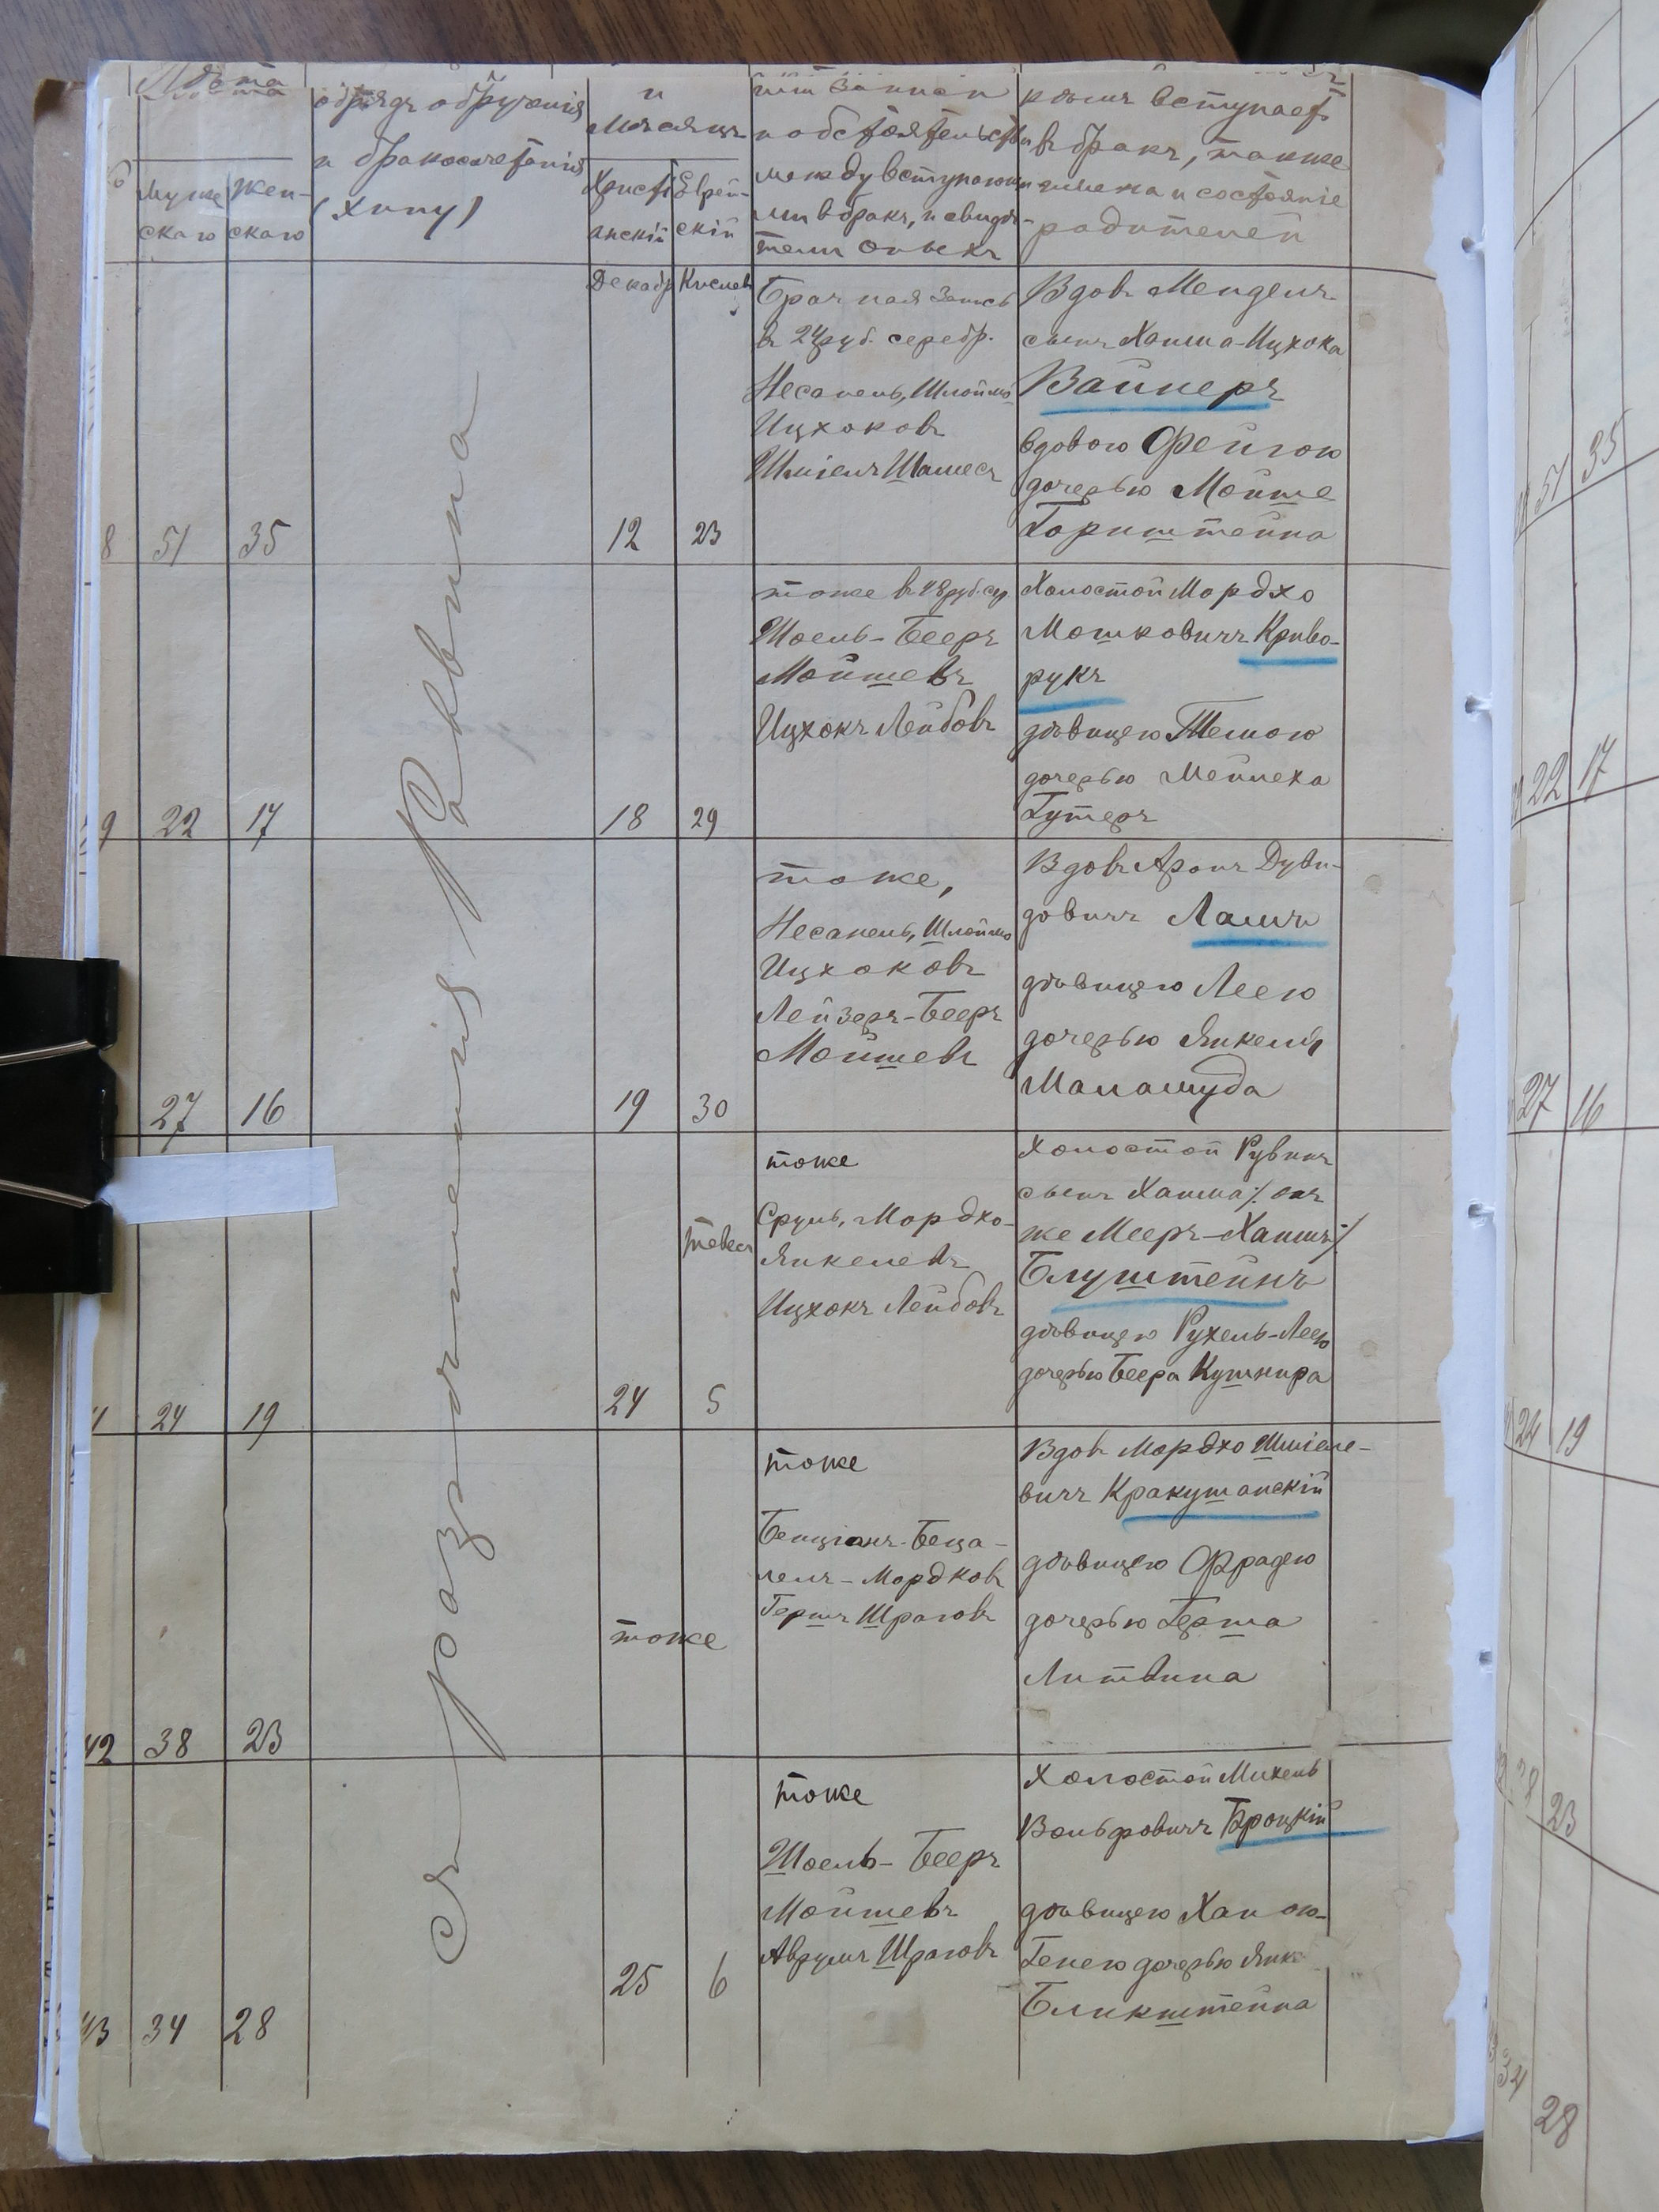 Лѣта
Муже
скаго
Жен-
скаго
обрядъ обрученія
и бракосочетанія
(хипу)
и
Мѣсяцъ
Христі
анскій
Еврей-
скій
и обстоятельств
между вступающи
ми в бракъ, и свидѣ-
тели оныхъ
вступает
в бракъ, также
имена и состояніе
родителей
Съ разрѣшенія Раввина
8 51 35
Декабр Кислев
12 23
Брачная запись
в 24 руб. серебр.
Несанель, Шлоймо
Ицхоковъ
Шміелъ Шамесъ
Вдовъ Менделъ
сынъ Хаима-Ицхока
Вайнеръ
вдовою Фейгою
дочерью Мойше
Горнштейна
9 22 17
18 29
тоже в 48 руб. сер.
Шоель-Бееръ
Мойшевъ
Ицхокъ Лейбовъ
Холостой Мордхо
Мошковичъ Криво-
рукъ
дѣвицею Темою
дочерью Мейлеха
Гутеръ
27 16
19 30
тоже,
Несанель, Шлоймо
Ицхоковъ
Лейзеръ-Бееръ
Мойшевъ
Вдовъ Аронъ Дуви-
довичъ Ламъ
дѣвицею Леею
дочерью Янкеля
Маламуда
1 24 19
Тевес
24 5
тоже
Сруль, Мордхо-
Янкелевъ
Ицхокъ Лейбовъ
Холостой Рувинъ
сынъ Хаима /. онъ
же Мееръ-Хаимъ ./
Блуштейнъ
дѣвицею Рухель-Леею
дочерью Беера Кушнира
42 38 23
тоже
тоже
Бенціанъ-Беца-
лелъ-Мордковъ
Гершъ Шраговъ
Вдовъ Мордхо Шміеле-
вичъ Кракушанскій
дѣвицею Фрадею
дочерью Герша
Литвина
43 34 28
25 6
тоже
Шоель-Бееръ
Мойшевъ
Аврумъ Шраговъ
Холостой Михель
Вольфовичъ Броцкій
дѣвицею Ханою-
Генею дочерью Янке
Бликштейна
51 35
22 17
27 16
24 19
23
34
28